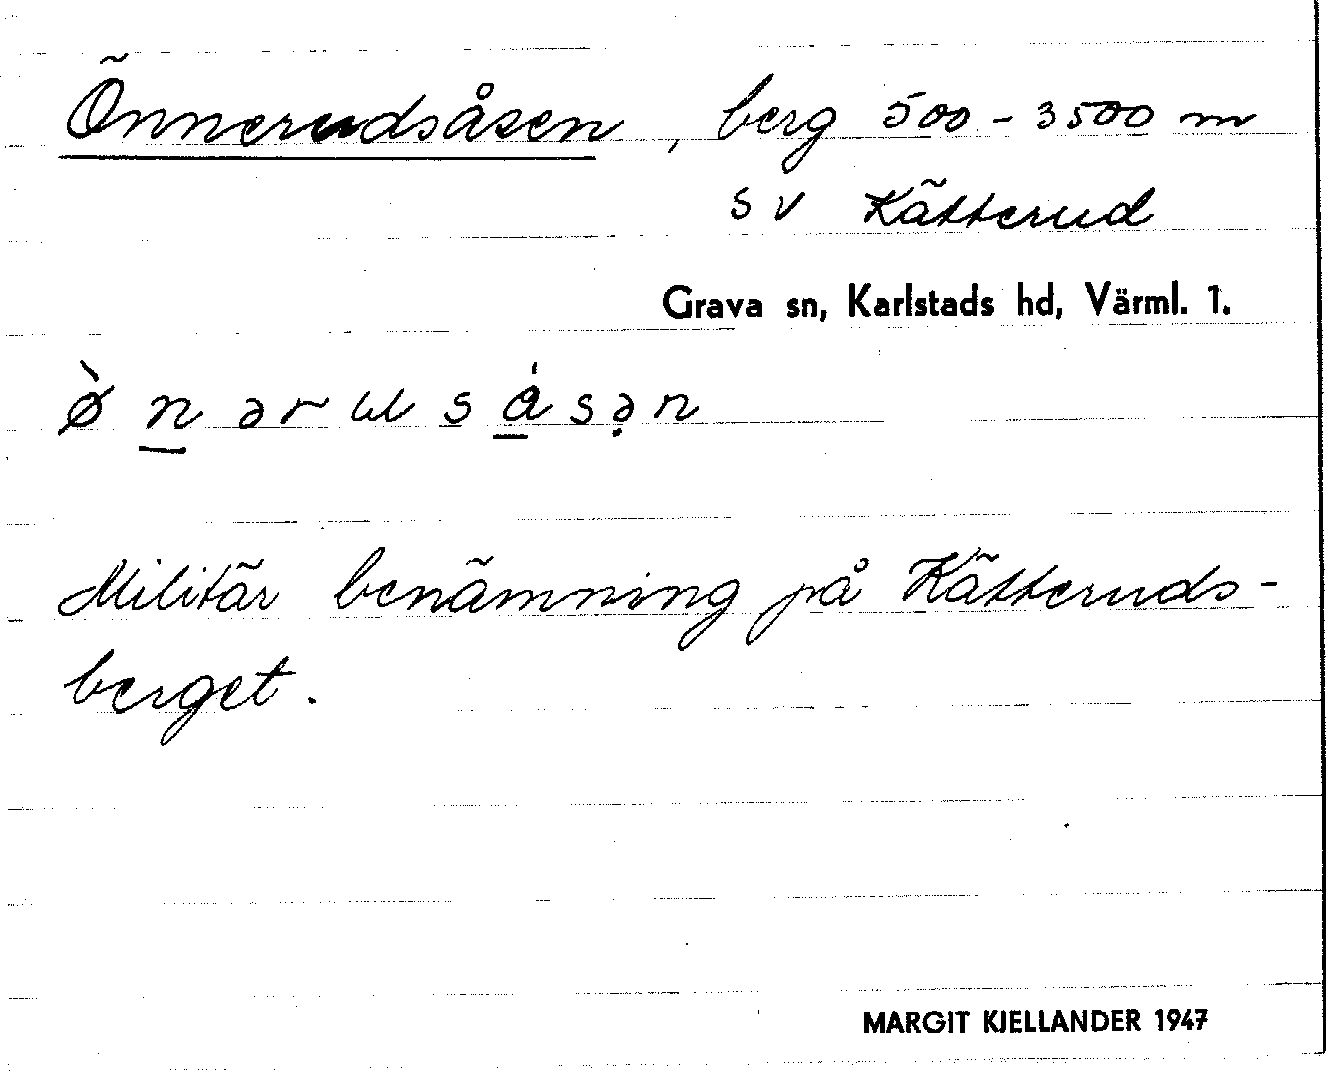 Önnerudsåsen, berg 500 - 3500 m
SV Kätterud
Grava sn, Karlstads hd, Värml. 1.
ø̀ n̲ ə r ɯ s å̲ s ə̣ n
Militär benämning på Kätteruds-
berget.
MARGIT KJELLANDER 1947